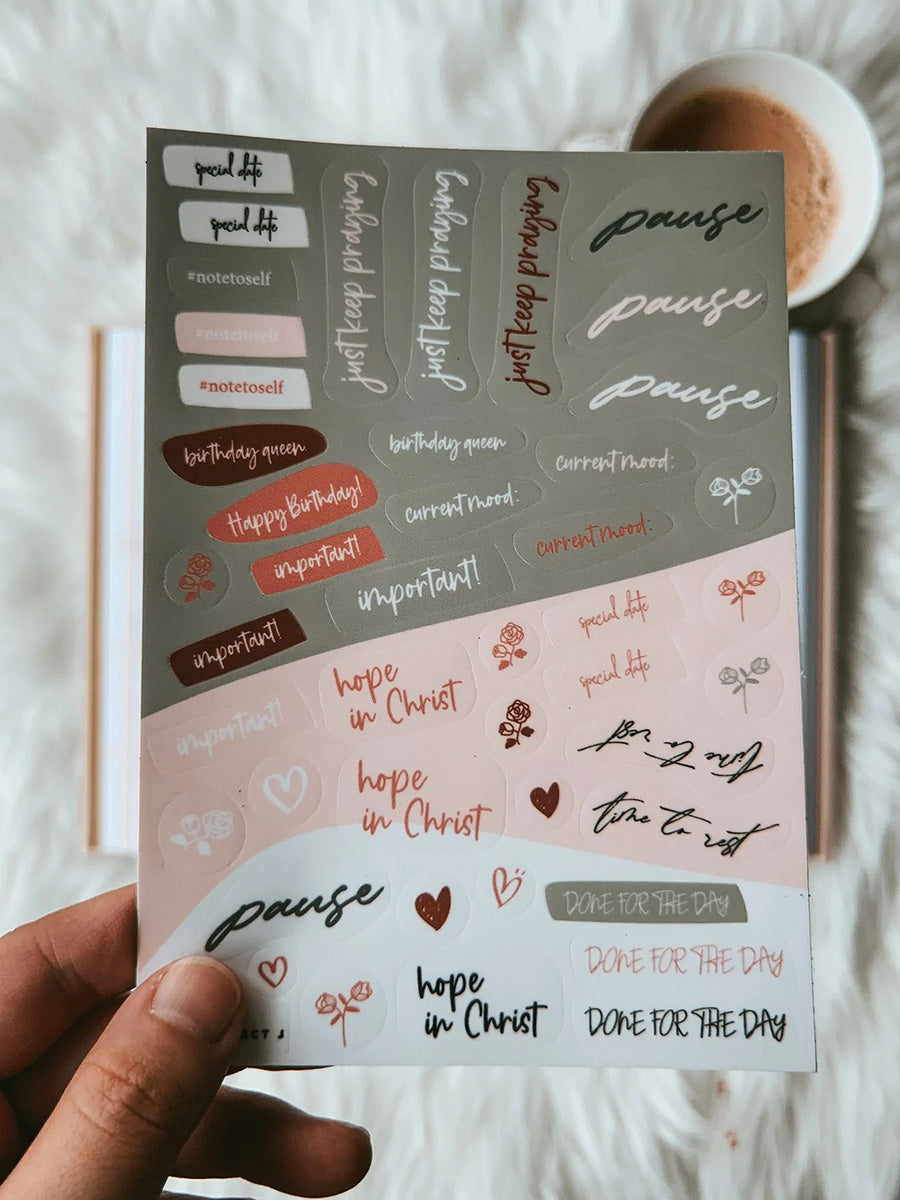 special date
special date
#notetoself
#notetoself
#notetoself
just keep praying
just keep praying
just keep praying
pause
pause
pause
birthday queen
birthday queen
current mood:
Happy Birthday!
current mood:
current mood:
important!
important!
important!
important!
special date
special date
hope
in Christ
hope
in Christ
time to rest
time to rest
pause
DONE FOR THE DAY
DONE FOR THE DAY
DONE FOR THE DAY
hope
in Christ